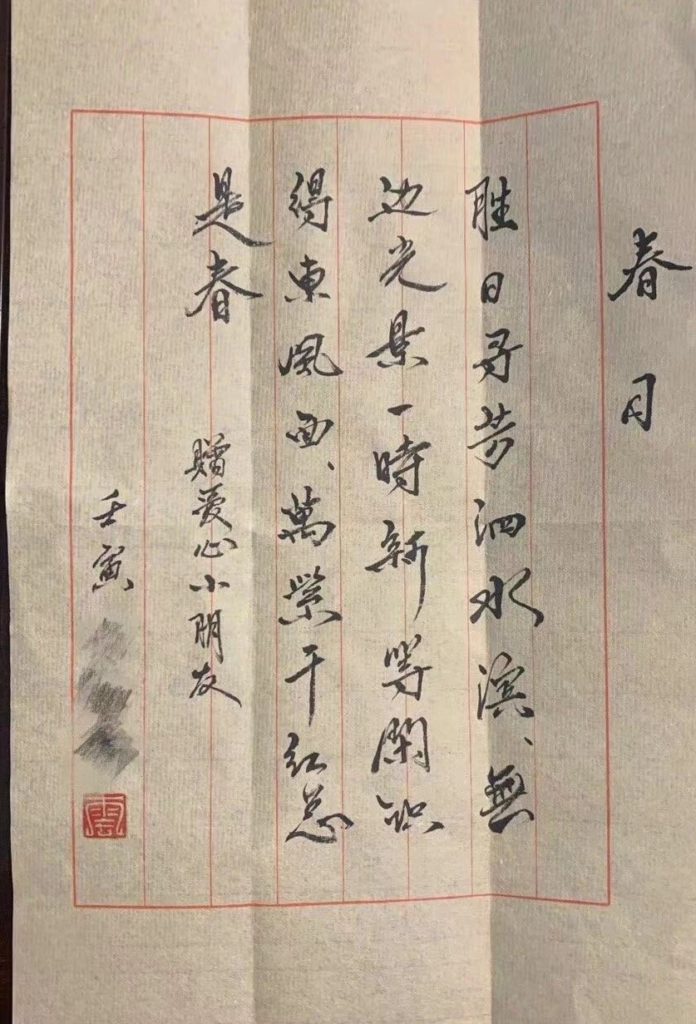 春日
胜日寻芳泗水滨、無
边光景一時新等閑识
得東風面、萬紫千红总
是春
贈爱心小朋友
壬寅
雲